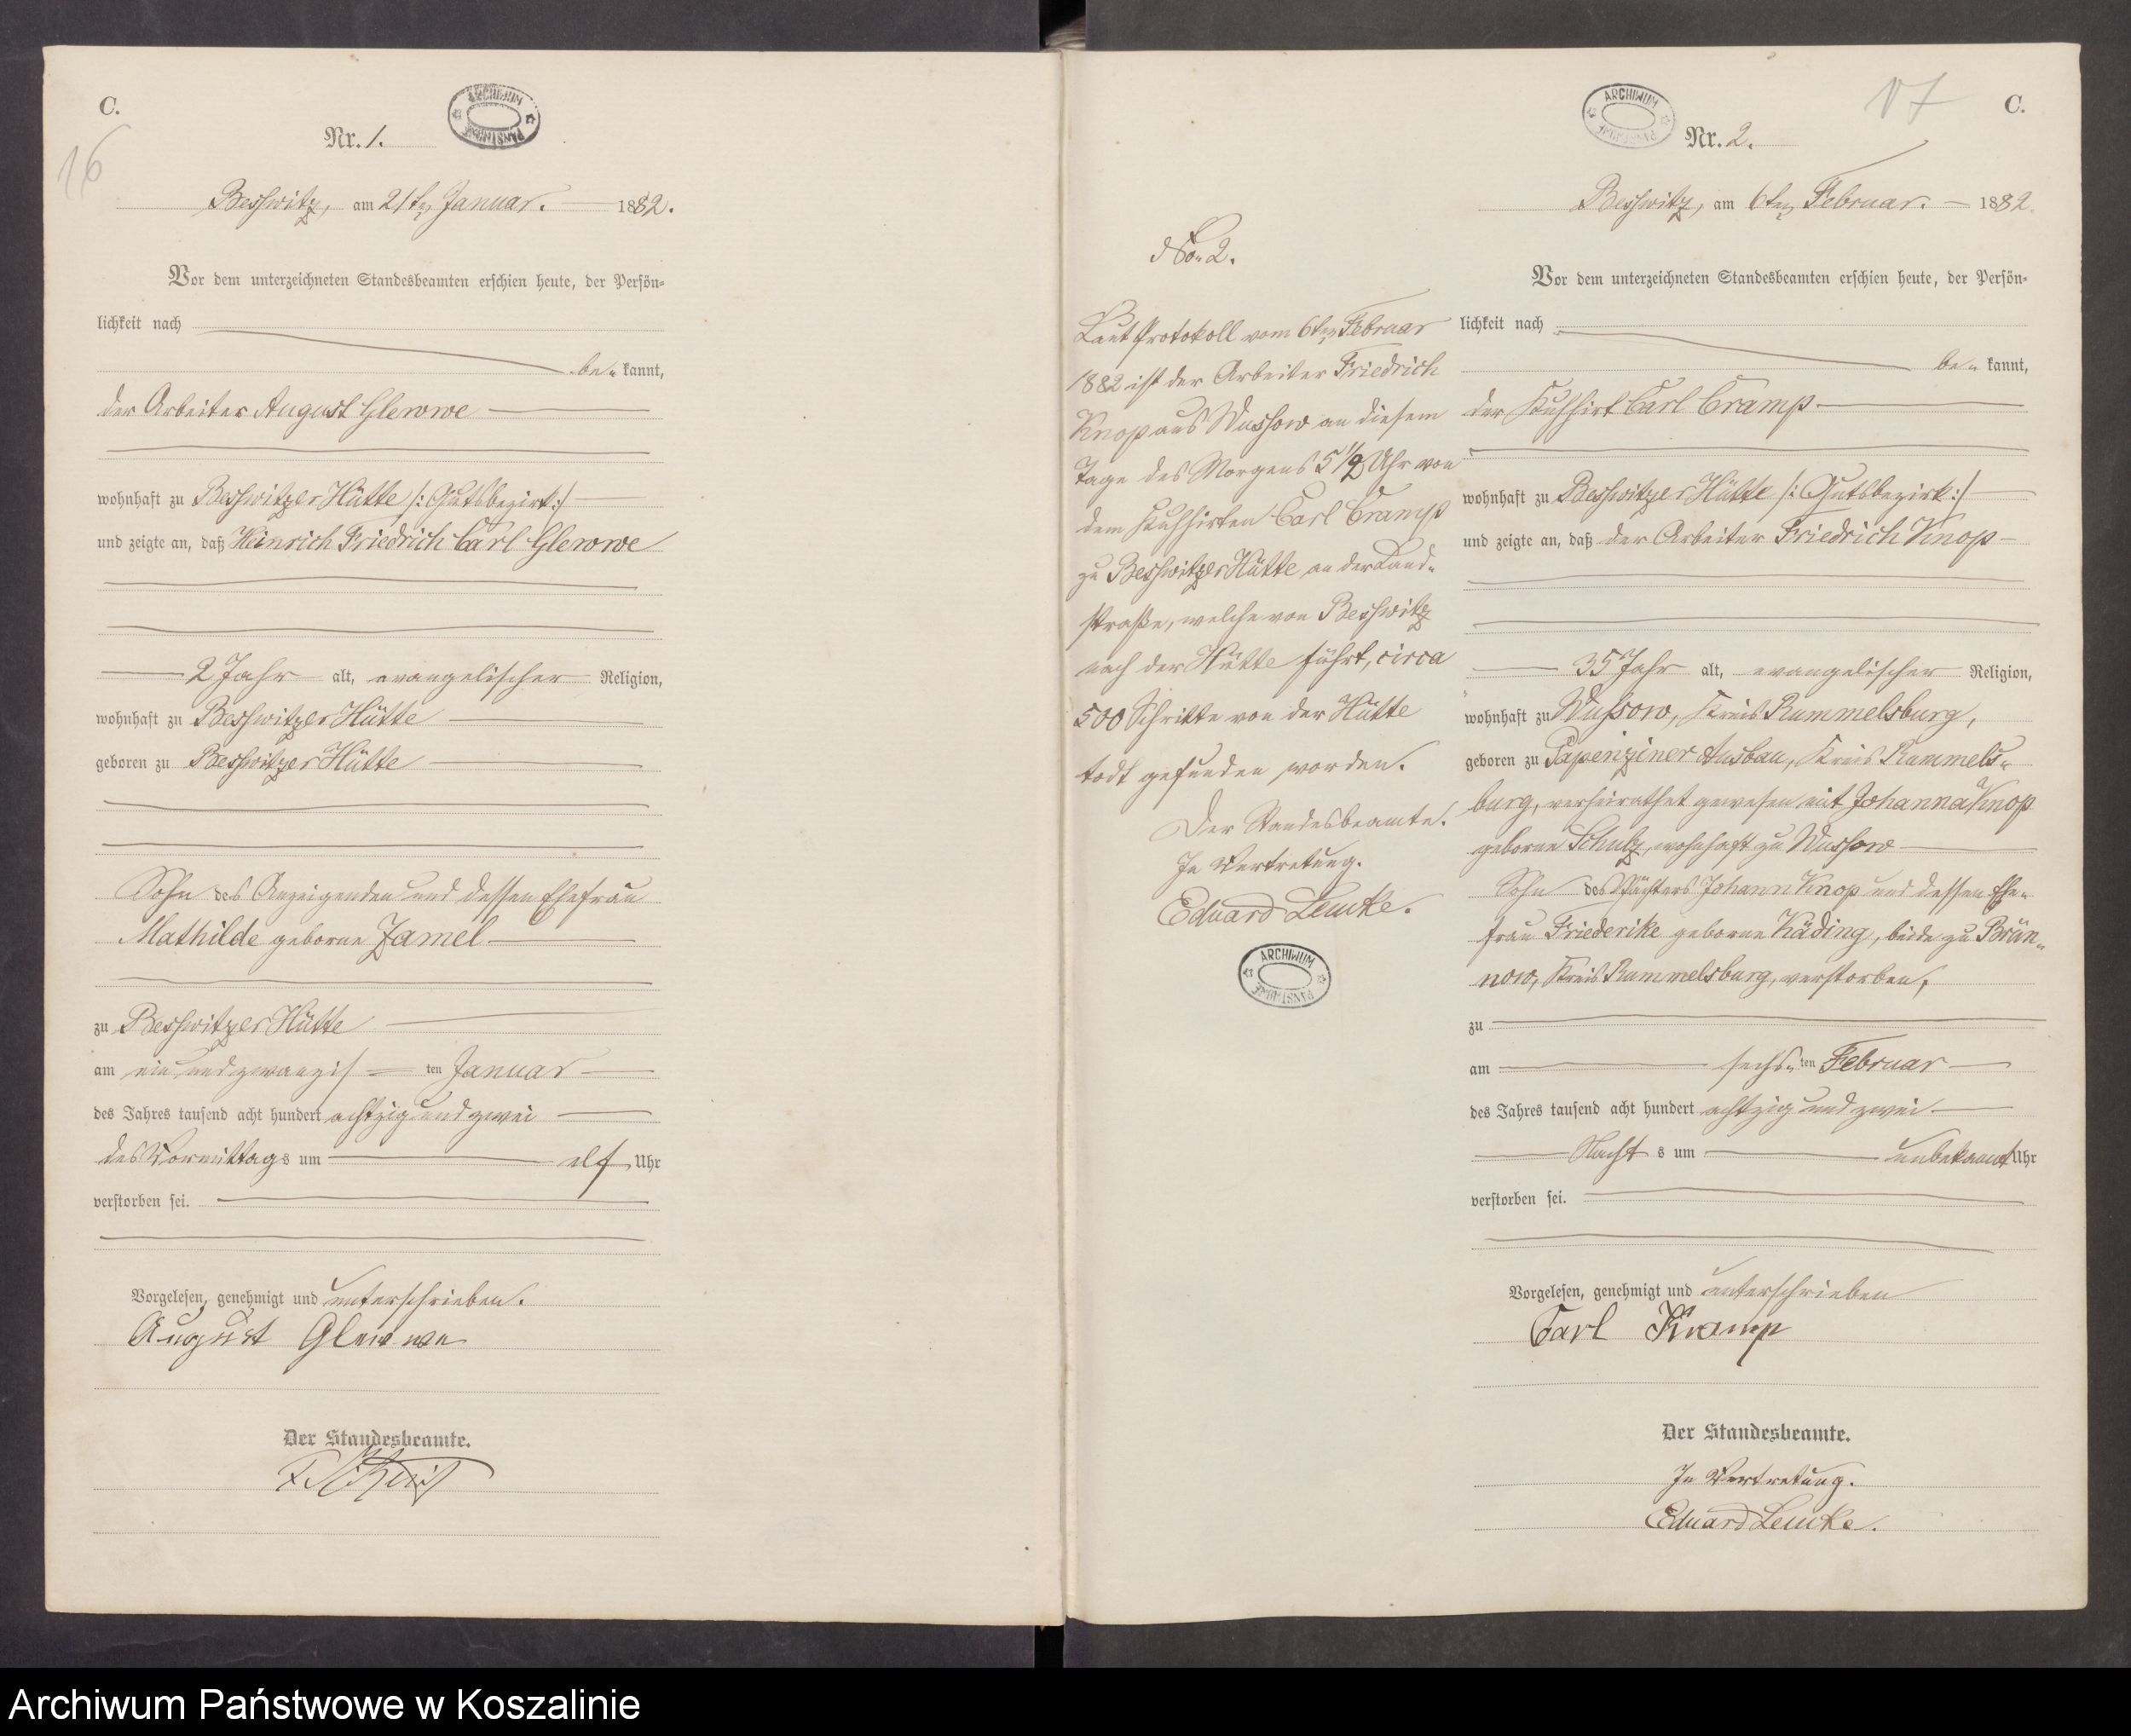 C.
16
Nr. 1.
ARCHIWUM PAŃSTWOWE
Besswitz, am 21ten Januar. 1882.
Vor dem unterzeichneten Standesbeamten erschien heute, der Persön-
lichkeit nach
be- kannt,
der Arbeiter August Glewwe
wohnhaft zu Besswitzer Hütte /: Gutsbezirk :/
und zeigte an, daß Heinrich Friedrich Carl Glewwe
2 Jahr alt, evangelischer Religion,
wohnhaft zu Besswitzer Hütte
geboren zu Besswitzer Hütte
Sohn des Anzeigenden und dessen Ehefrau
Mathilde geborne Jamel
zu Besswitzer Hütte
am ein und zwanzig ten Januar
des Jahres tausend acht hundert achtzig und zwei
des Vormittags um elf Uhr
verstorben sei.
Vorgelesen, genehmigt und unterschrieben.
August Glewwe
Der Standesbeamte.
No 2.
Laut Protokoll vom 6ten Februar
1882 ist der Arbeiter Friedrich
Knop aus Wussow an diesem
Tage des Morgens 5 1/2 Uhr von
dem Kuhhirten Carl Cramp
zu Besswitzer Hütte an der Land-
straße, welche von Besswitz
nach der Hütte führt, circa
500 Schritte von der Hütte
todt gefunden worden.
Der Standesbeamte.
In Vertretung.
Eduard Lemke.
ARCHIWUM PAŃSTWOWE
17
C.
ARCHIWUM PAŃSTWOWE
Nr. 2.
Besswitz, am 6ten Februar. 1882.
Vor dem unterzeichneten Standesbeamten erschien heute, der Persön-
lichkeit nach
be- kannt,
der Kuhhirt Carl Cramp
wohnhaft zu Besswitzer Hütte /: Gutsbezirk :/
und zeigte an, daß der Arbeiter Friedrich Knop
35 Jahr alt, evangelischer Religion,
wohnhaft zu Wussow, Kreis Rummelsburg,
geboren zu Papenziner Ausbau, Kreis Rummels-
burg, verheirathet gewesen mit Johanna Knop
geborne Schulz, wohnhaft zu Wussow
Sohn des Pächters Johann Knop und dessen Ehe-
frau Friederike geborne Käding, beide zu Brün-
now, Kreis Rummelsburg, verstorben,
zu
am sechs- ten Februar
des Jahres tausend acht hundert achtzig und zwei
Nacht s um unbekannt Uhr
verstorben sei.
Vorgelesen, genehmigt und unterschrieben
Carl Kramp
Der Standesbeamte.
In Vertretung.
Eduard Lemke.
Archiwum Państwowe w Koszalinie